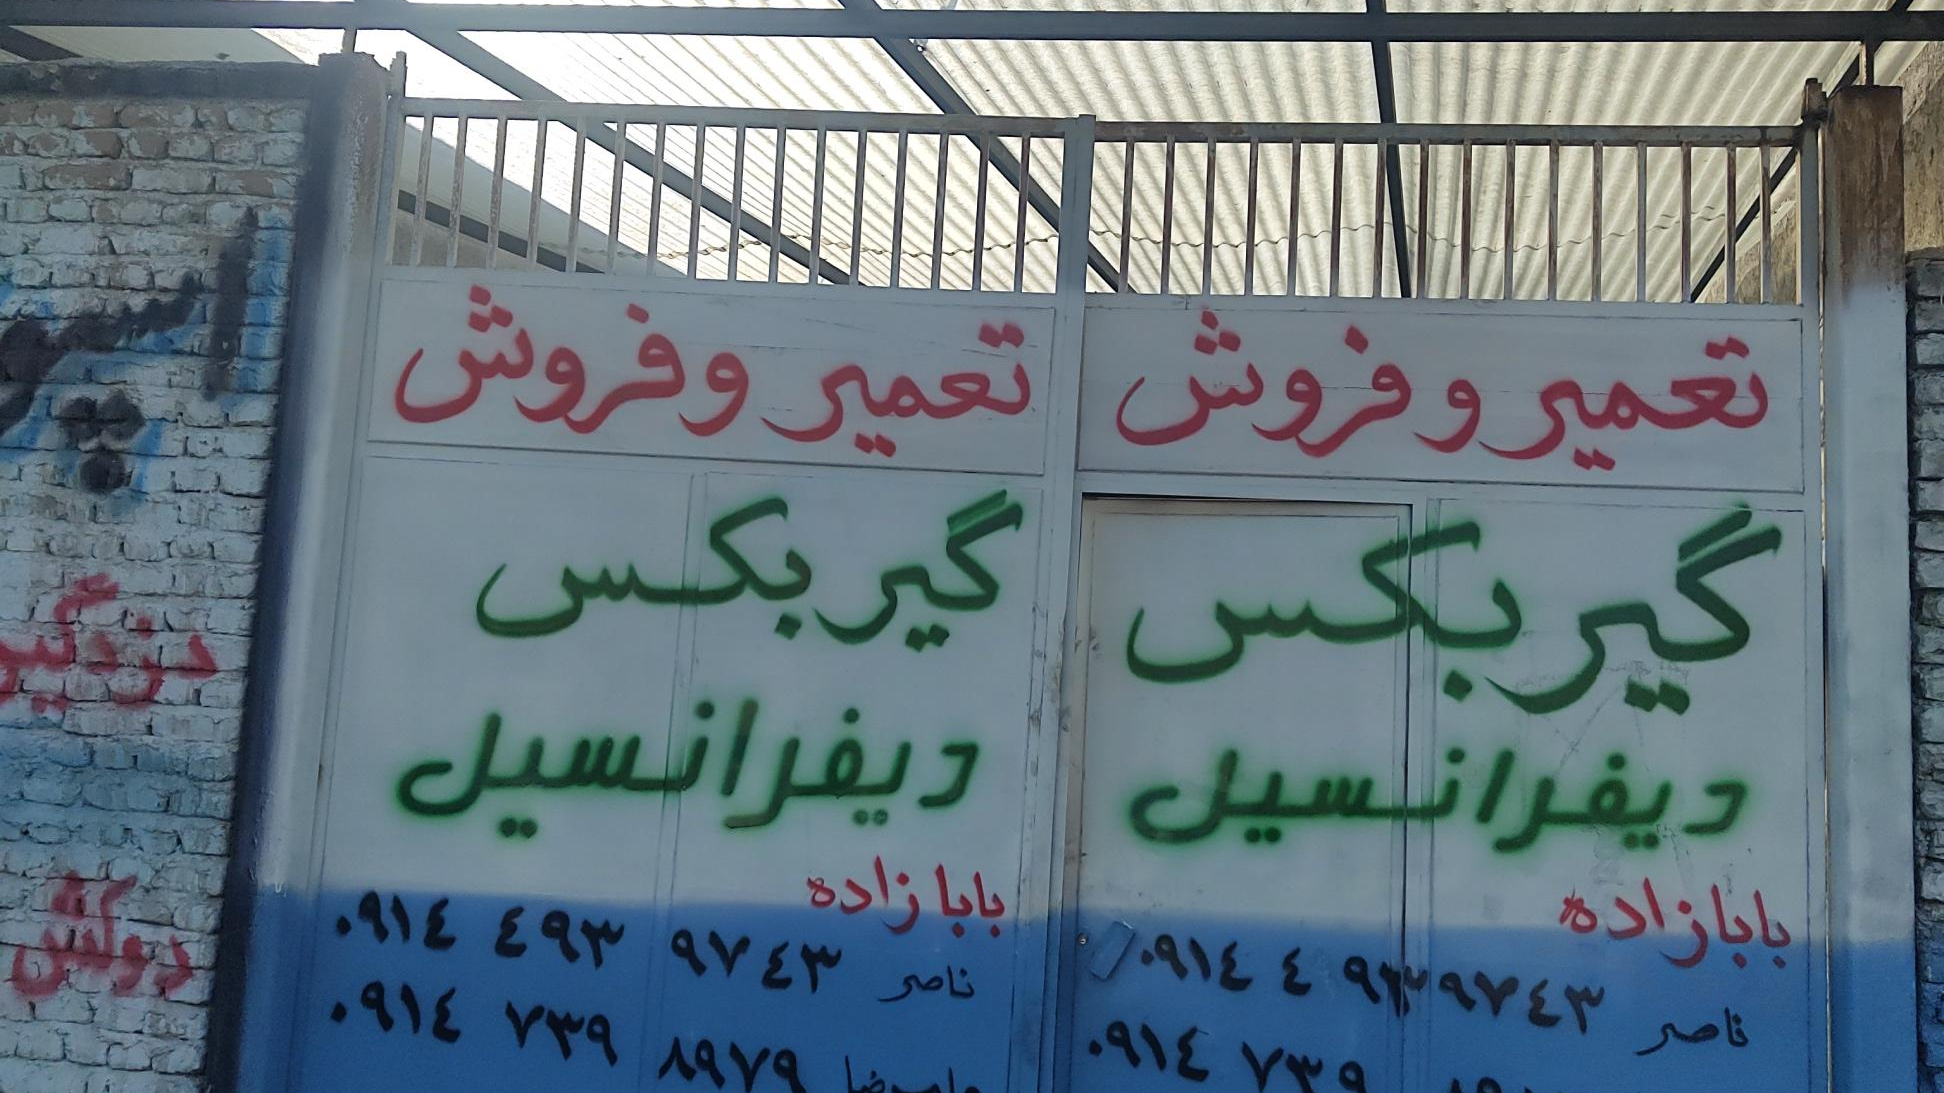 تعمیر و فروش
گیربکس
دیفرانسیل
بابازاده
۰۹۱٤ ٤۹۳ ۹۷٤۳ ناصر
۰۹۱٤ ۷۳۹
تعمیر و فروش
گیربکس
دیفرانسیل
بابازاده
۰۹۱٤ ٤۹۳ ۹۷٤۳ ناصر
۰۹۱٤ ۷۳۹ ۸۹۷۹
دولکس